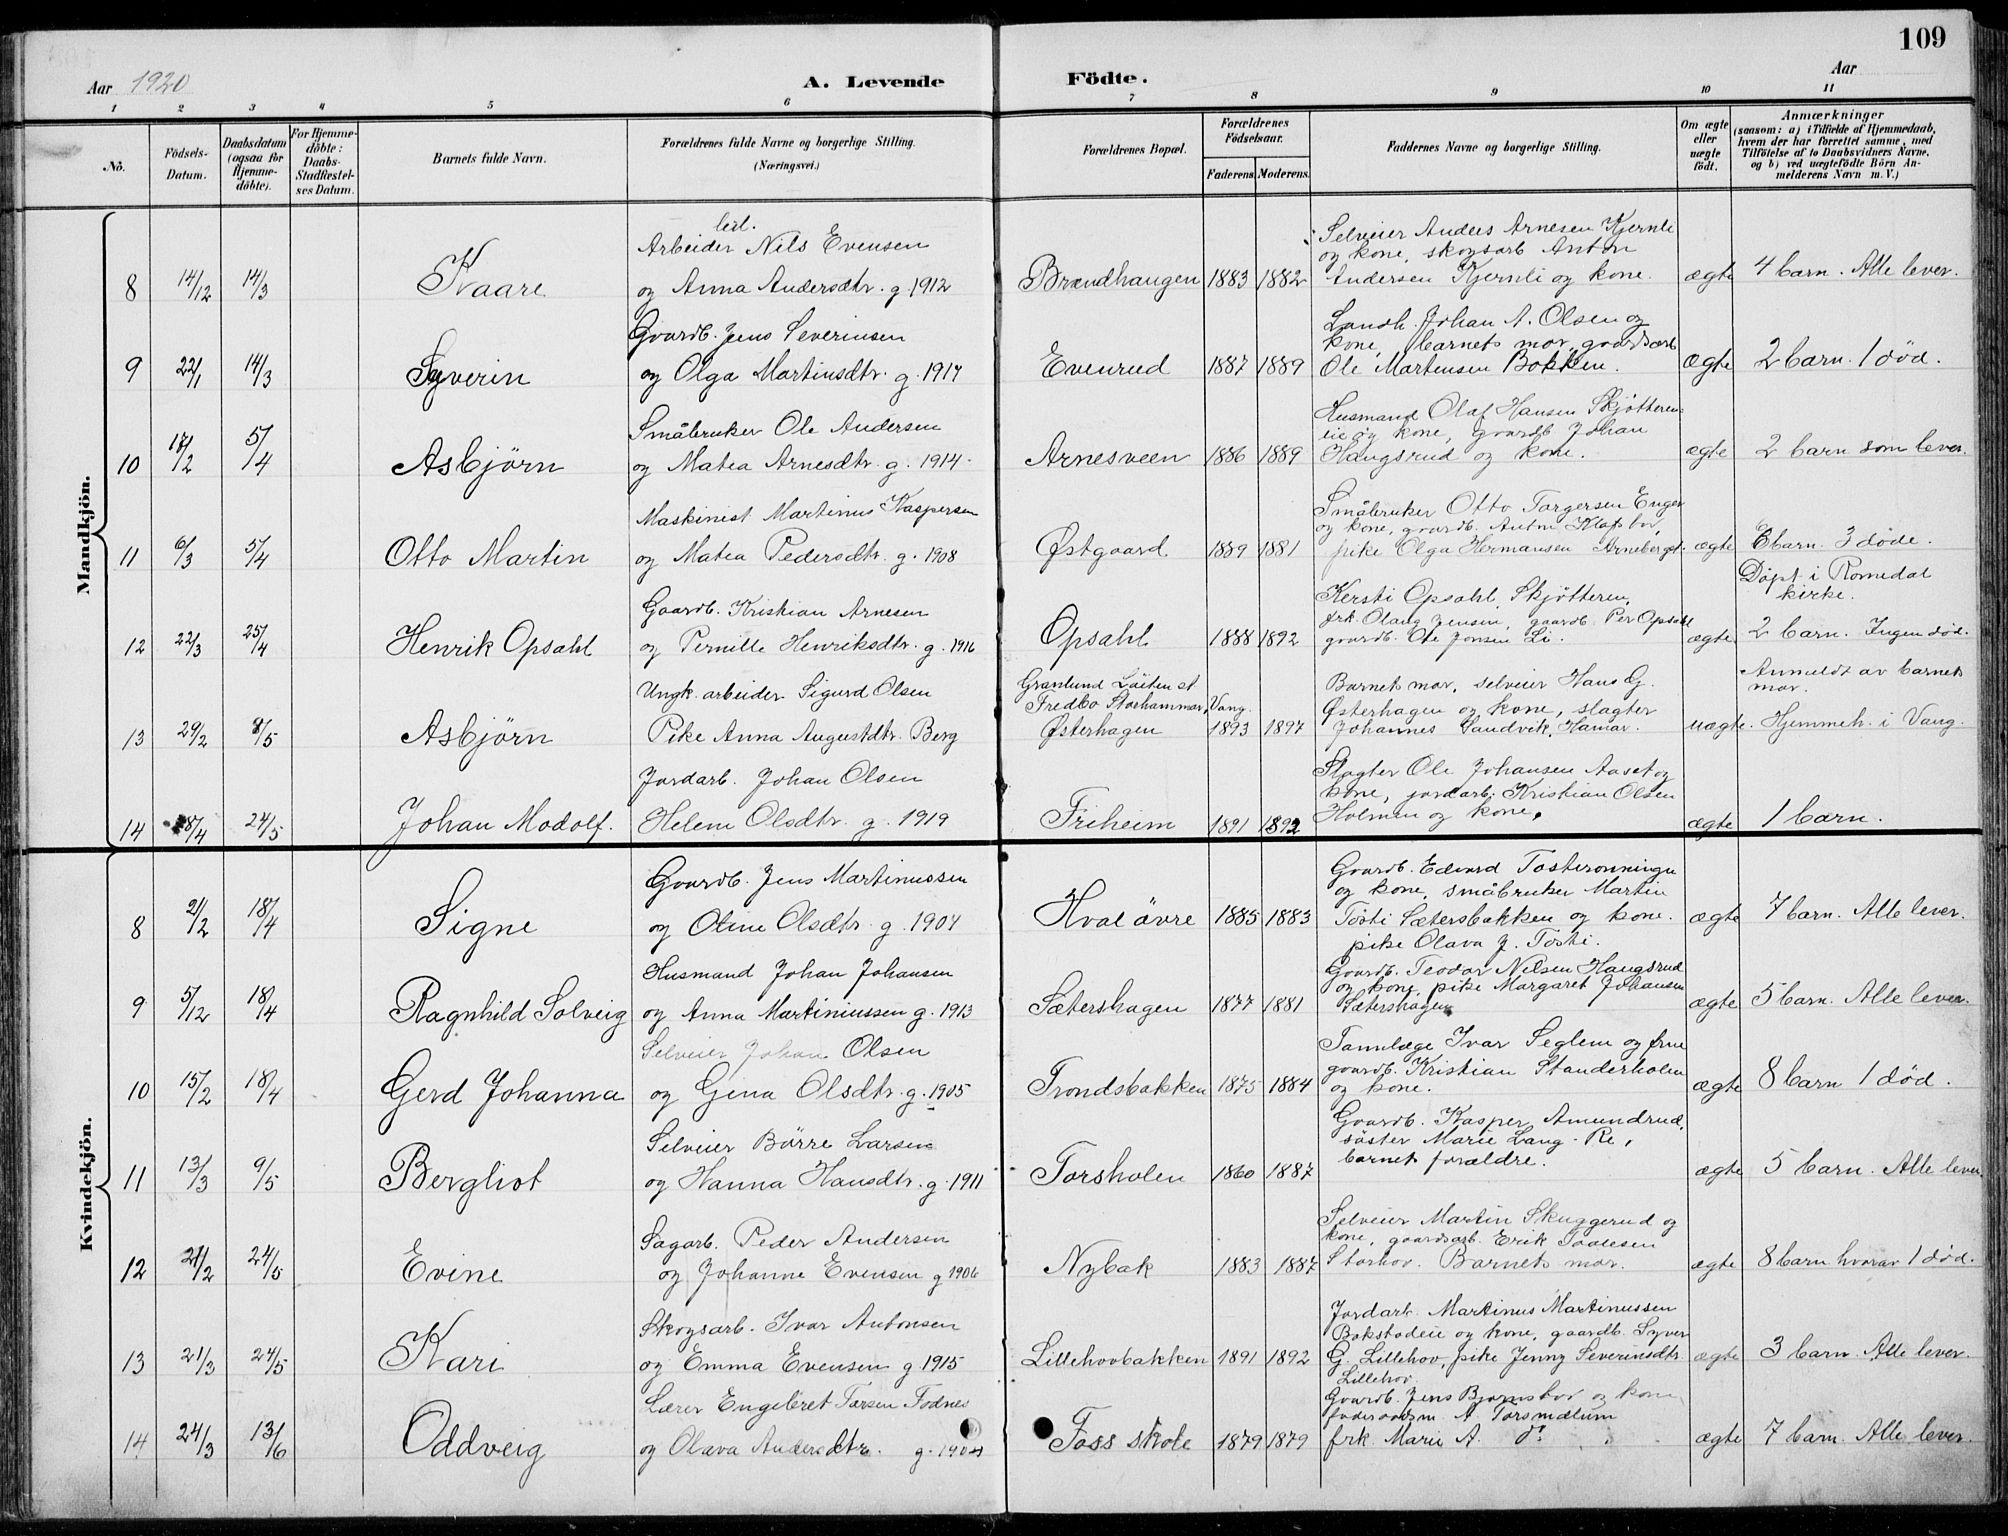 109
Aar 1920
A. Levende
Födte.
Aar
1 2 3 4 5 6 7 8 9 10 11
No.
Födsels-Datum.
Daabsdatum (ogsaa for Hjemme-döbte).
For Hjemme-döbte: Daabs-Stadfæstel-ses Datum.
Barnets fulde Navn.
Forældrenes fulde Navne og borgerlige Stilling.
(Næringsvei.)
Forældrenes Bopæl.
Forældrenes Födselsaar.
Faderens. Moderens.
Faddernes Navne og borgerlige Stilling.
Om ægte eller uægte födt.
Anmærkninger
(saasom: a) i Tilfælde af Hjemmedaab,
hvem der har forrettet samme, med
Tilföielse af to Daabsvidners Navne,
og b) ved uægtefödte Börn An-
melderens Navn m. V.)
Mandkjön.
leil.
Arbeider Nils Evensen
Selveier Anders Arnesen Kjernli
og kone, skogsarb Anton
8 14/12 14/3 Kaare og Anna Andersdtr. g. 1912 Brændhaugen 1883 1882 Andersen Kjernli og kone. ægte 4 barn. Alle lever.
Gaardb. Jens Severinsen
Landh. Johan A. Olsen og
kone, barnets mor, gaardsarb
9 22/1 14/3 Syverin og Olga Martinsdtr. g. 1917 Evenrud 1887 1889 Ole Martensen Bakken. ægte 2 barn. 1 död.
Småbruker Ole Andersen
Husmand Olaf Hansen Skjötteren-
eie og kone, gaardb Johan
10 17/2 5/4 Asbjörn og Matea Arnesdtr. g. 1914. Arnesveen 1886 1889 Haugsrud og kone. ægte 2 barn som lever.
Maskinist Martinus Kaspersen
Småbruker Otto Torgersen Enger
og kone, gaardb. Anton Kløfsbor,
11 6/3 5/4 Otto Martin og Matea Pedersdtr. g. 1908 Østgaard 1889 1881 pike Olga Hermansen Arneberget. ægte 8 barn. 3 døde.
Döpt i Romedal
kirke.
Gaardb. Kristian Arnesen
Kersti Opsahl, Skjötteren,
frk. Olaug Jensen, gaardb. Per Opsahl
12 22/3 25/4 Henrik Opsahl og Pernille Henriksdtr. g. 1916 Opsahl 1888 1892 gaardb. Ole Jonsen Li. ægte 2 barn. Ingen död.
Ungk. arbeider Sigurd Olsen
Granlund Löiten st
Fredbo Storhammar, Vang.
Barnets mor, selveier Hans G.
Østerhagen og kone, slagter
Anmeldt av barnets
mor.
13 29/2 8/5 Asbjörn Pike Anna Augustdtr. Berg Østerhagen 1893 1897 Johannes Sandvik, Hamar. uægte. Hjemmeh. i Vang.
Jordarb. Johan Olsen
Slagter Ole Johansen Aaset og
kone, jordarb. Kristian Olsen
14 8/4 24/5 Johan Modolf. Helene Olsdtr. g. 1919 Friheim 1891 1892 Holmen og kone. ægte 1 barn.
Kvindekjön.
Gaardb. Jens Martinussen
Gaardb. Edvard Tosterønningen
og kone, småbruker Martin
8 21/2 18/4 Signe og Oline Olsdtr. g. 1907 Hval övre 1885 1883 Tosti Sætersbakken og kone. ægte 7 barn. Alle lever.
pike Olava J. Tosti.
Husmand Johan Johansen
Gaardb. Teodor Nilsen Haugsrud
og kone, pike Margaret Johansen
9 5/12 18/4 Ragnhild Solveig og Anna Martiniussen g. 1913 Sætershagen 1877 1881 Sætershagen ægte 5 barn. Alle lever.
Selveier Johan Olsen
Tannlæge Ivar Seglem og frue
gaardb. Kristian Standerholen
10 15/2 18/4 Gerd Johanna og Gina Olsdtr. g. 1905 Trondsbakken 1875 1884 og kone. ægte 8 barn 1 død.
Selveier Börre Larsen
Gaardb. Kasper Amundrud,
söster Marie Lang-Re,
11 13/3 9/5 Bergliot og Hanna Hansdtr. g. 1911 Torsholen 1860 1887 barnets forældre. ægte 5 barn. Alle lever.
Sagarb. Peder Andersen
Selveier Martin Skuggerud og
kone, gaardsarb. Erik Paalesen
12 21/2 24/5 Evine og Johanne Evensen g 1906 Nybak 1883 1887 Storhov. Barnets mor. ægte 8 barn hvorav 1 død.
Skogsarb. Ivar Antonsen
Jordarb. Martinus Martinussen
Bakstadeie og kone, gaardb. Syver
13 21/3 24/5 Kari og Emma Evensen g 1915 Lillehovbakken 1891 1892 G. Lillehov, pike Jenny Severinsdtr. ægte 3 barn. Alle lever.
Lillehov.
Lærer Engebret Tarsen Fodnes
Gaardb. Jens Bjørnshov og kone
A. Torsmælum
14 24/3 13/6 Oddveig og Olava Andersdtr. g. 1904 Foss skole 1879 1879 frk. Marie A. do ægte 7 barn. Alle lever.